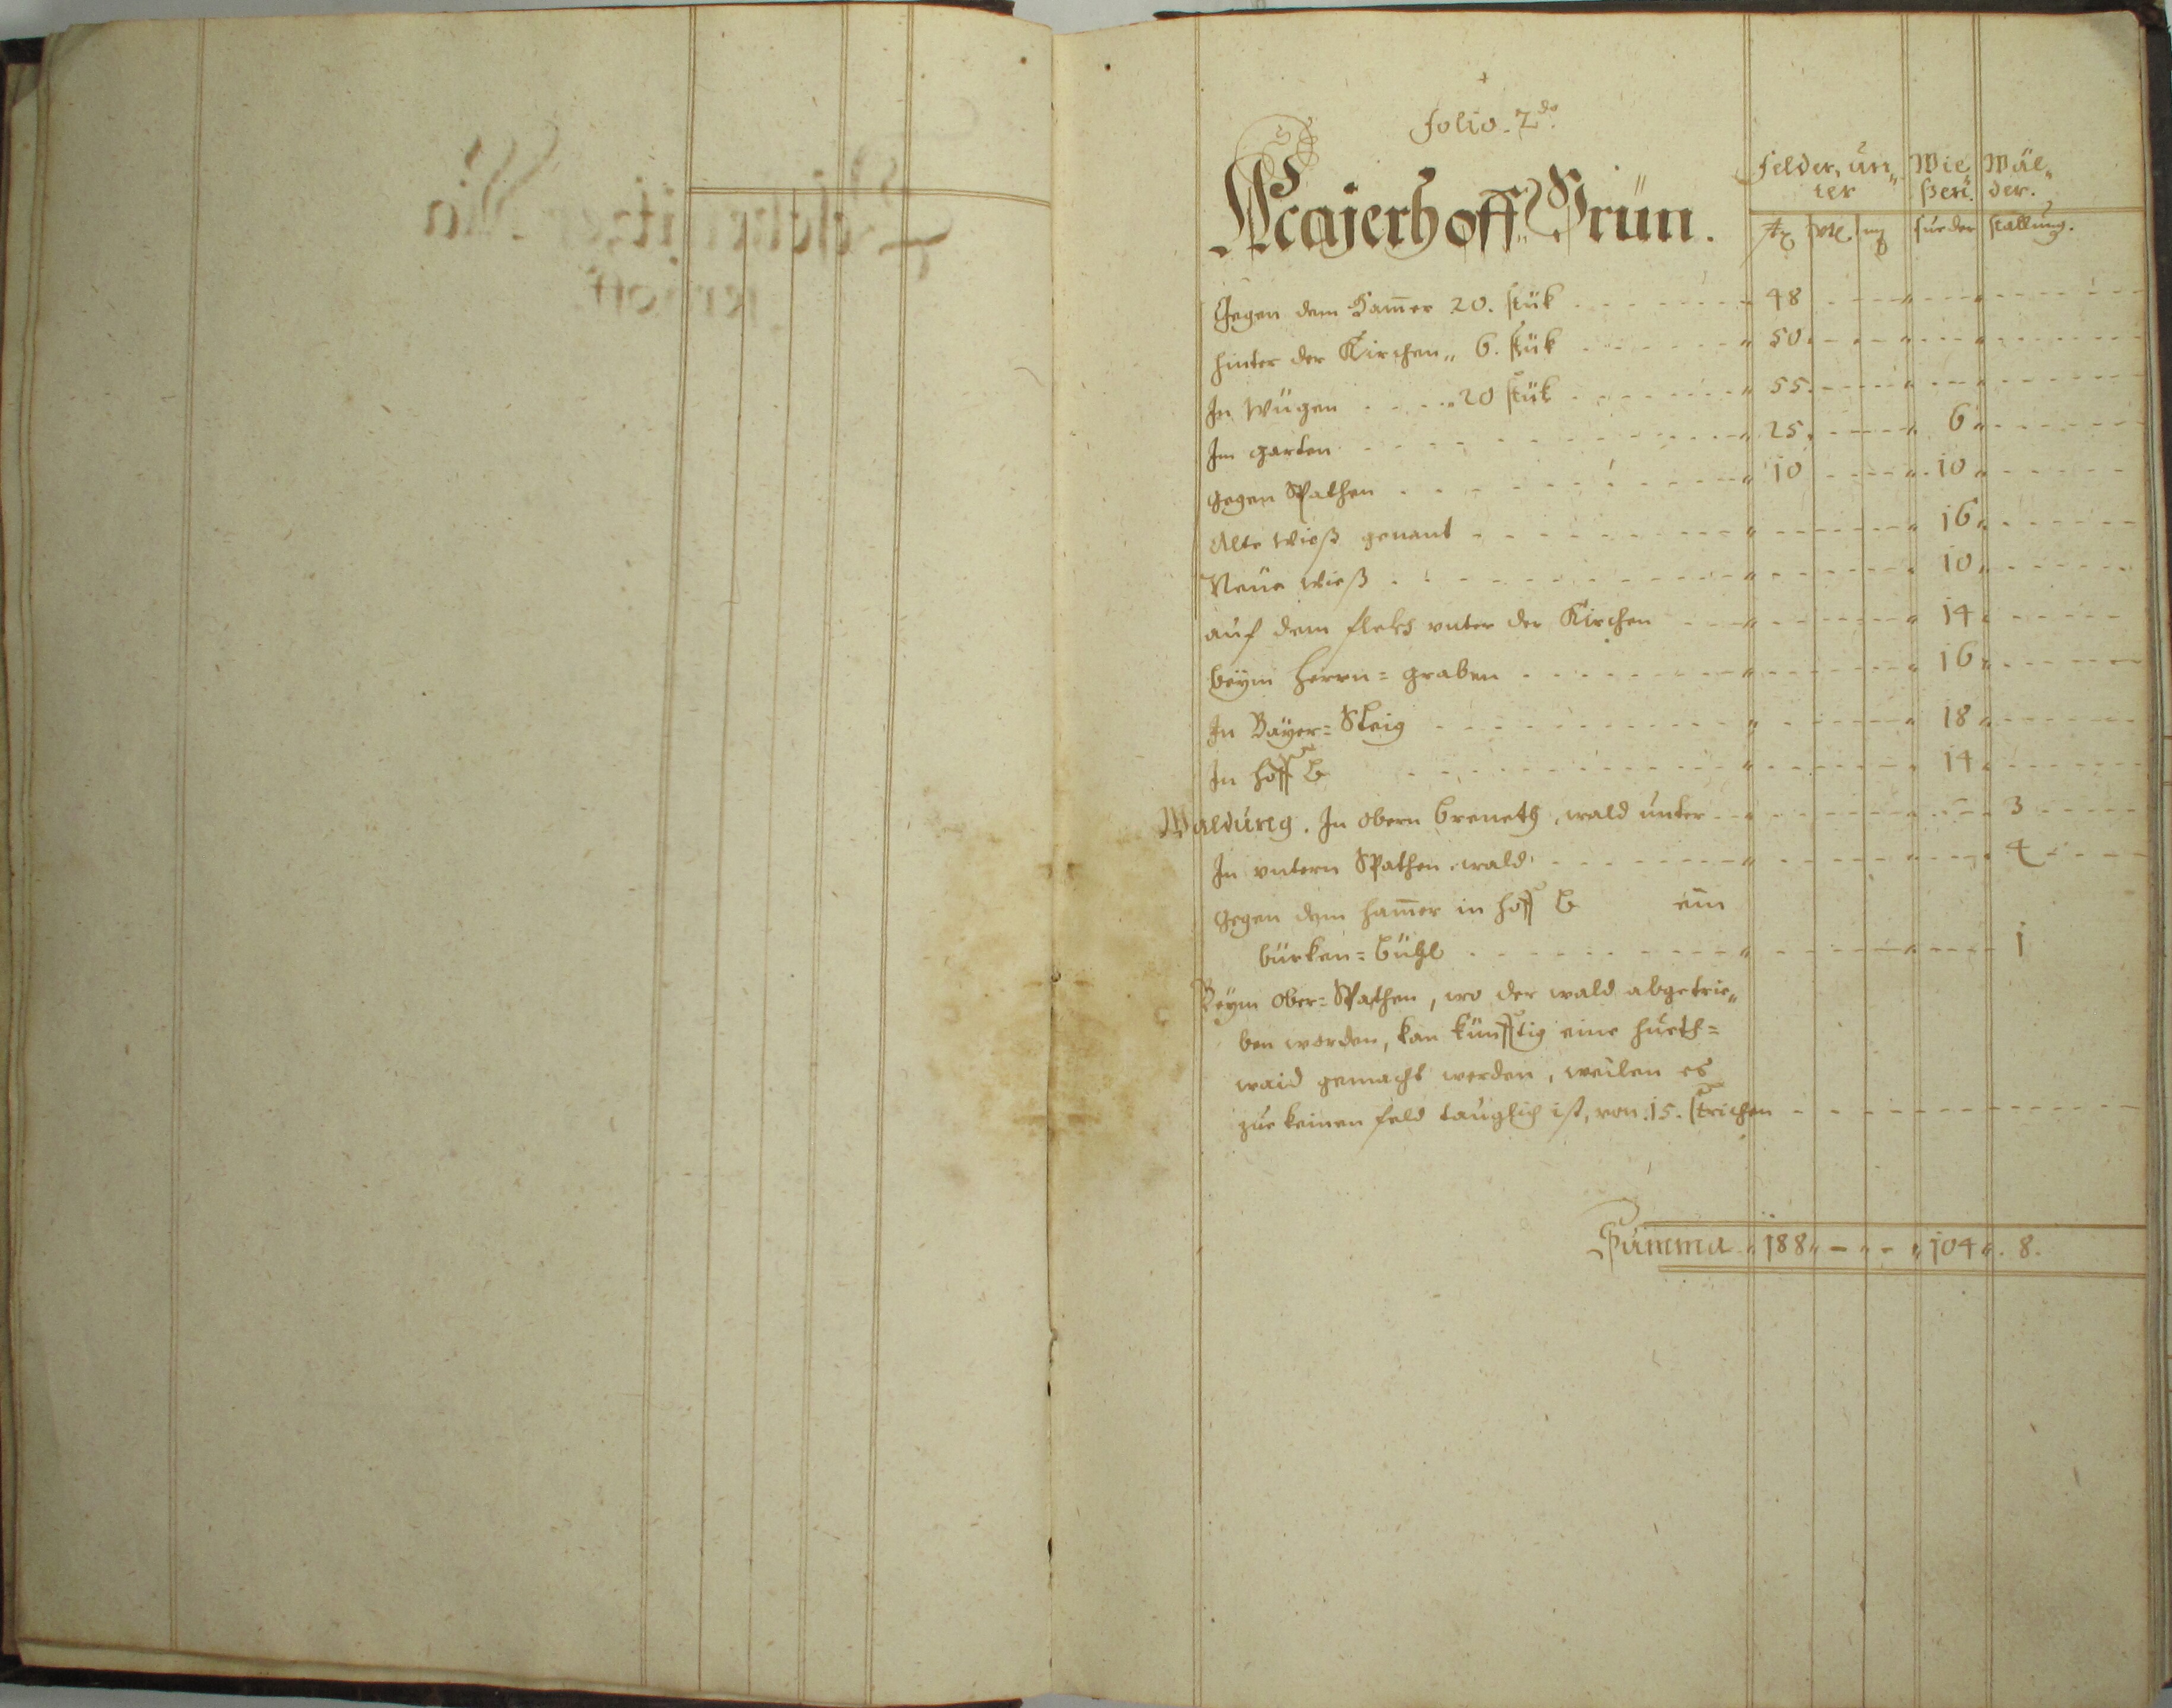 Folio. 2do.
Majerhoff Grün.
Felder, un„ Wie Wäl„
ter ßen. der.
str vtl mß fuder stallung.
Gegen dem Ham̄er 20. stük 48
hinter der Kirchen„ 6. stük 50
In Wügen 20 stük 55
Im garten 25 6
gegen Spathen 10 10
Alte Wieß genant 16
Neue Wieß 10
auf dem flekh vnter der Kirchen 14
beÿm Herrn=graben 16
In Baÿer=Steig 18
In hoff 14
Waldung. In obern Greneth, wald unter 3
In vntern Spathen wald 4
gegen dem ham̄er in hoff ein
bürken=bühl 1
Beÿm Ober=Spathen, wo der wald abgetrie„
ben worden, kan künfftig eine hueth=
waid gemacht werden, weilen es
zue keinen feld tauglich ist, von 15. strichen
Summa 188 „ - „ - „ 104 „ 8.